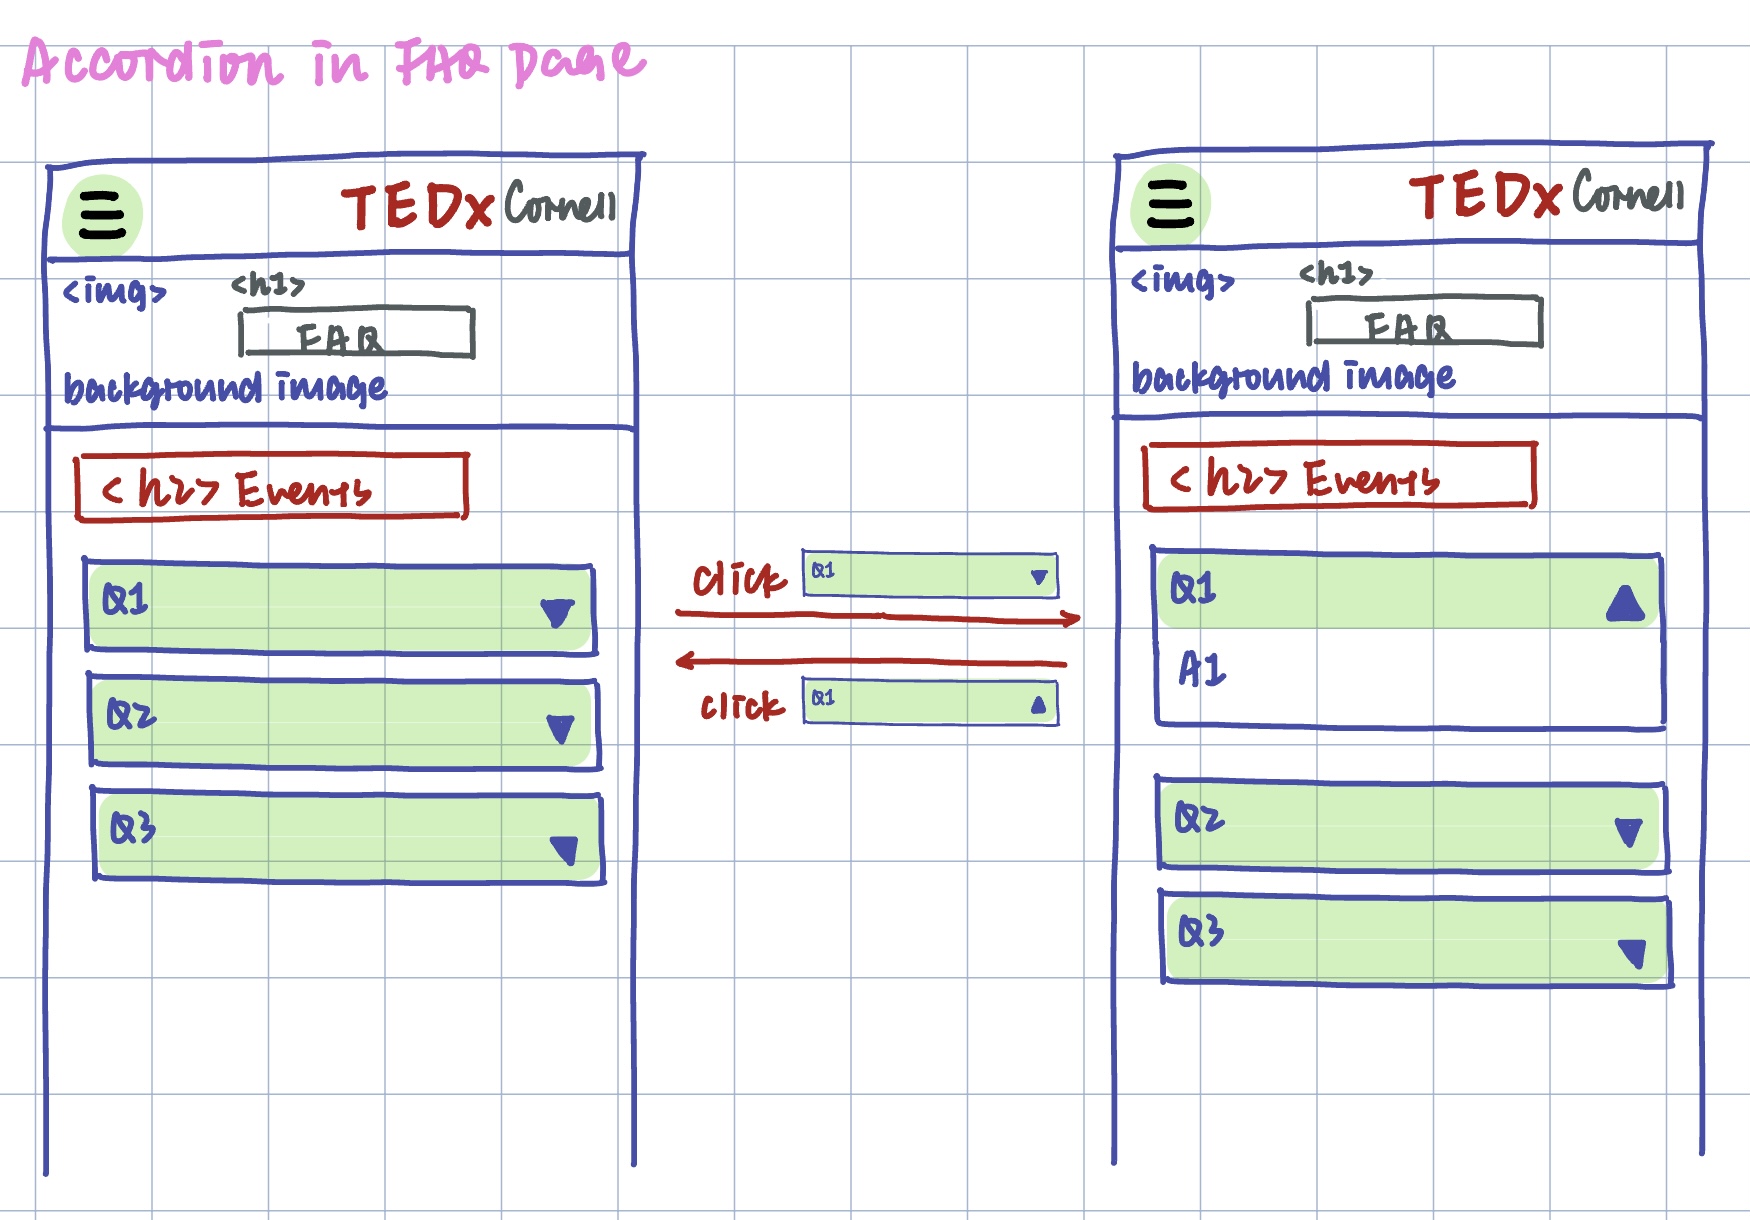 Accordion in FAQ page
TEDx Cornell
<img>
<h1>
FAQ
background image
<h2> Events
Q1
Q2
Q3
click Q1
click Q1
TEDx Cornell
<img>
<h1>
FAQ
background image
<h2> Events
Q1
A1
Q2
Q3